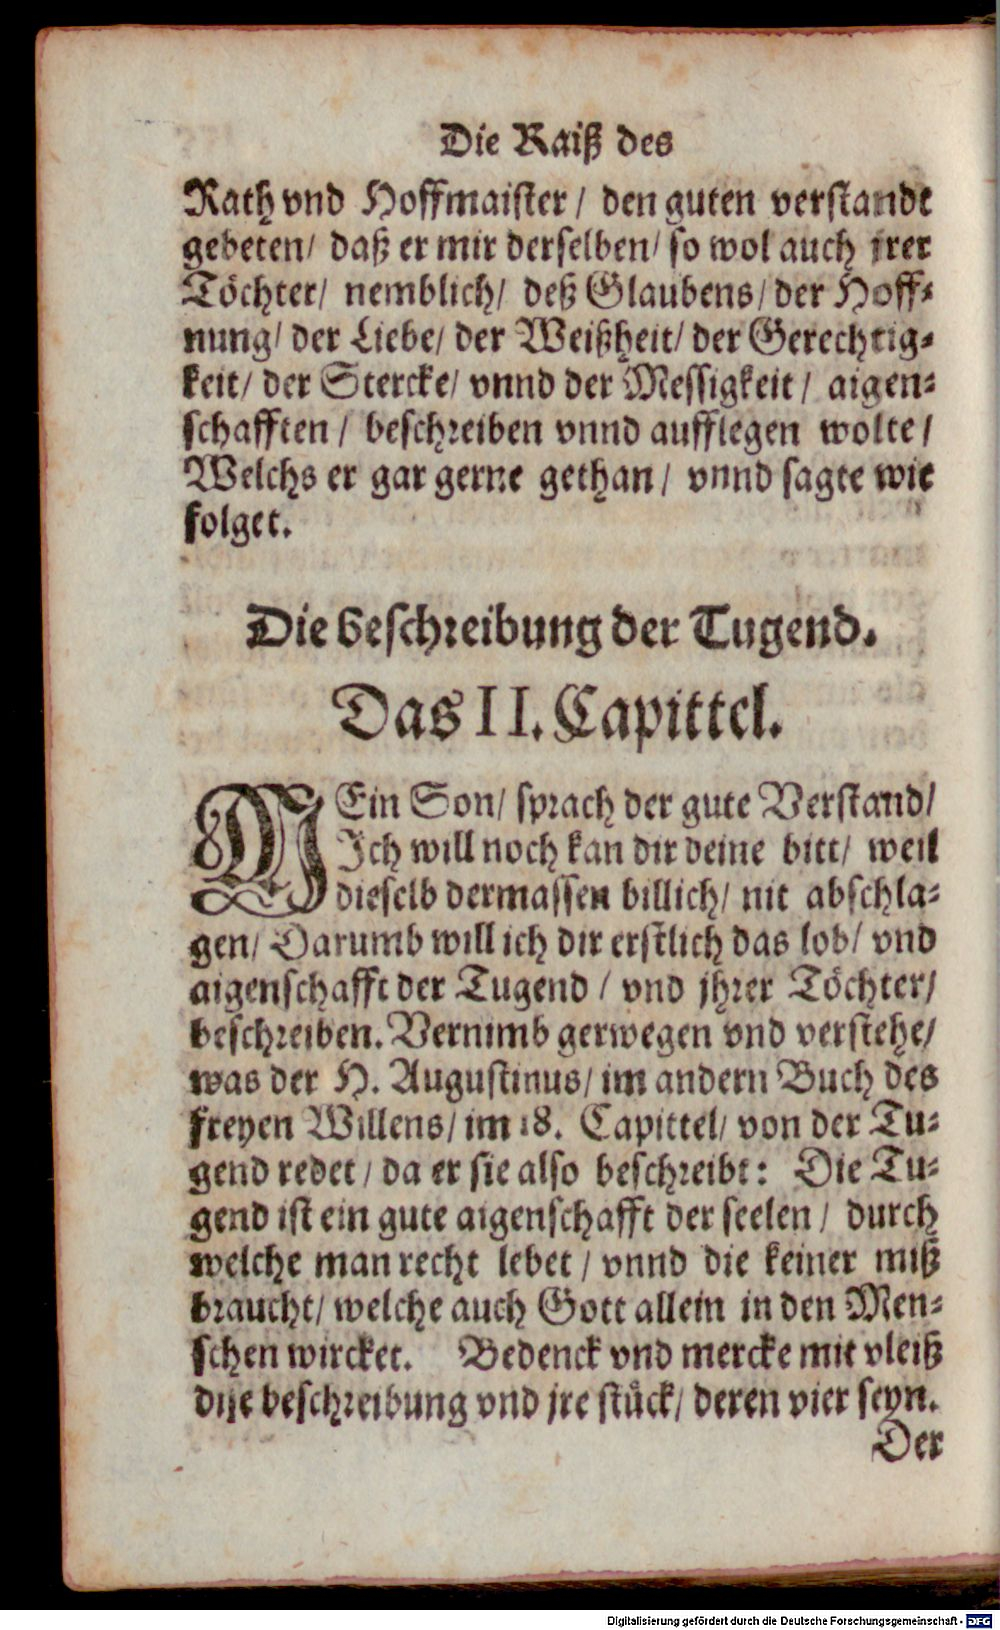 Die Raiß des
Rath vnd Hoffmaister / den guten verstandt
gebeten / daß er mir derselben / so wol auch jrer
Töchter / nemblich / deß Glaubens / der Hoff-
nung / der Liebe / der Weißheit / der Gerechtig-
keit / der Stercke / vnnd der Messigkeit / aigen-
schafften / beschreiben vnnd aufflegen wolte /
Welchs er gar gerne gethan / vnnd sagte wie
folget.
Die beschreibung der Tugend.
Das II. Capittel.
MEin Son / sprach der gute Verstand /
Ich will noch kan dir deine bitt / weil
dieselb dermassen billich / nit abschla-
gen / Darumb will ich dir erstlich das lob / vnd
aigenschafft der Tugend / vnd jhrer Töchter /
beschreiben. Vernimb gerwegen vnd verstehe /
was der H. Augustinus / im andern Buch des
freyen Willens / im 18. Capittel / von der Tu-
gend redet / da er sie also beschreibt: Die Tu-
gend ist ein gute aigenschafft der seelen / durch
welche man recht lebet / vnnd die keiner miß
braucht / welche auch Gott allein in den Men-
schen wircket. Bedenck vnd mercke mit vleiß
dise beschreibung vnd jre stück / deren vier seyn.
Der
Digitalisierung gefördert durch die Deutsche Forschungsgemeinschaft - DFG